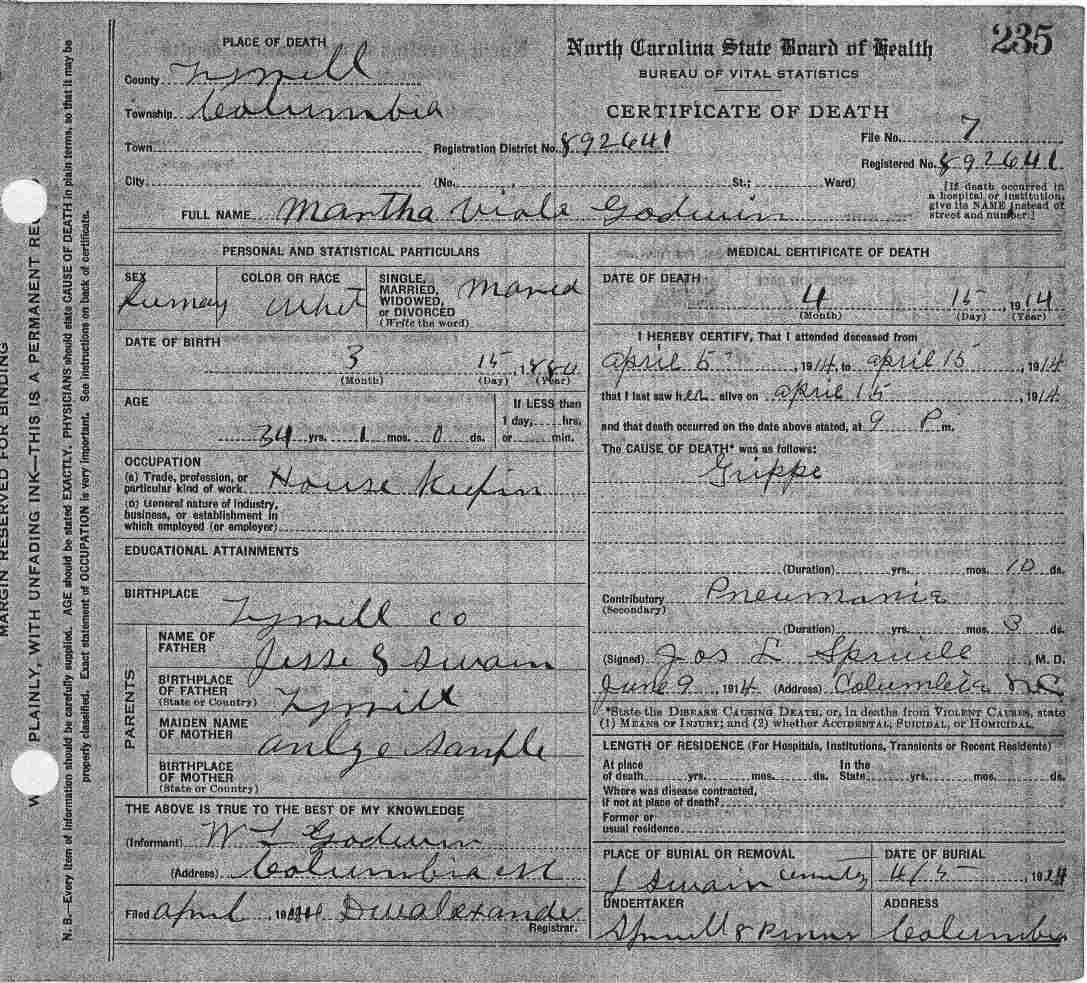 235
PLACE OF DEATH
North Carolina State Board of Health
BUREAU OF VITAL STATISTICS
CERTIFICATE OF DEATH
County Tyrrell
Township Columbia
Town Registration District No. 892641
File No. 7
Registered No. 892641
City (No. , St.; Ward)
[If death occurred in
a hospital or institution,
give its NAME instead of
street and number.]
FULL NAME Martha Viola Godwin
PERSONAL AND STATISTICAL PARTICULARS
SEX
COLOR OR RACE Whit
SINGLE,
MARRIED,
WIDOWED,
or DIVORCED
(Write the word)
Maried
DATE OF BIRTH
3 15, 1884
(Month) (Day) (Year)
AGE
34 yrs. 1 mos. 0 ds.
If LESS than
1 day, hrs.
or min.
OCCUPATION
(a) Trade, profession, or
particular kind of work House Keepin
(b) General nature of industry,
business, or establishment in
which employed (or employer)
EDUCATIONAL ATTAINMENTS
BIRTHPLACE
Tyrrell co
PARENTS
NAME OF
FATHER
Jesse S Swain
BIRTHPLACE
OF FATHER
(State or Country)
Tyrrell
MAIDEN NAME
OF MOTHER
Sample
BIRTHPLACE
OF MOTHER
(State or Country)
THE ABOVE IS TRUE TO THE BEST OF MY KNOWLEDGE
(Informant) W L Godwin
(Address) Columbia NC
Filed April, 191 D W Alexander
Registrar.
MEDICAL CERTIFICATE OF DEATH
DATE OF DEATH
4 15, 1914
(Month) (Day) (Year)
I HEREBY CERTIFY, That I attended deceased from
April 5, 1914, to April 15, 1914
that I last saw her alive on April 15, 1914
and that death occurred on the date above stated, at 9 P m.
The CAUSE OF DEATH* was as follows:
Grippe
(Duration) yrs. mos. 10 ds.
Contributory Pneumonia
(Secondary)
(Duration) yrs. mos. 3 ds.
(Signed) Jos L Spruill, M. D.
June 9, 1914 (Address) Columbia N.C.
*State the DISEASE CAUSING DEATH, or, in deaths from VIOLENT CAUSES, state
(1) MEANS OF INJURY; and (2) whether ACCIDENTAL, SUICIDAL, OR HOMICIDAL.
LENGTH OF RESIDENCE (For Hospitals, Institutions, Transients or Recent Residents)
At place
of death yrs. mos. ds.
In the
State yrs. mos. ds.
Where was disease contracted,
if not at place of death?
Former or
usual residence
PLACE OF BURIAL OR REMOVAL
Swain cemetery
DATE OF BURIAL
4/5, 1914
UNDERTAKER
Spruill &
ADDRESS
Columbia
MARGIN RESERVED FOR BINDING
PLAINLY, WITH UNFADING INK—THIS IS A PERMANENT
N. B.—Every item of information should be carefully supplied. AGE should be stated EXACTLY. PHYSICIANS should state CAUSE OF DEATH in plain terms, so that it may be
properly classified. Exact statement of OCCUPATION is very important. See instructions on back of certificate.